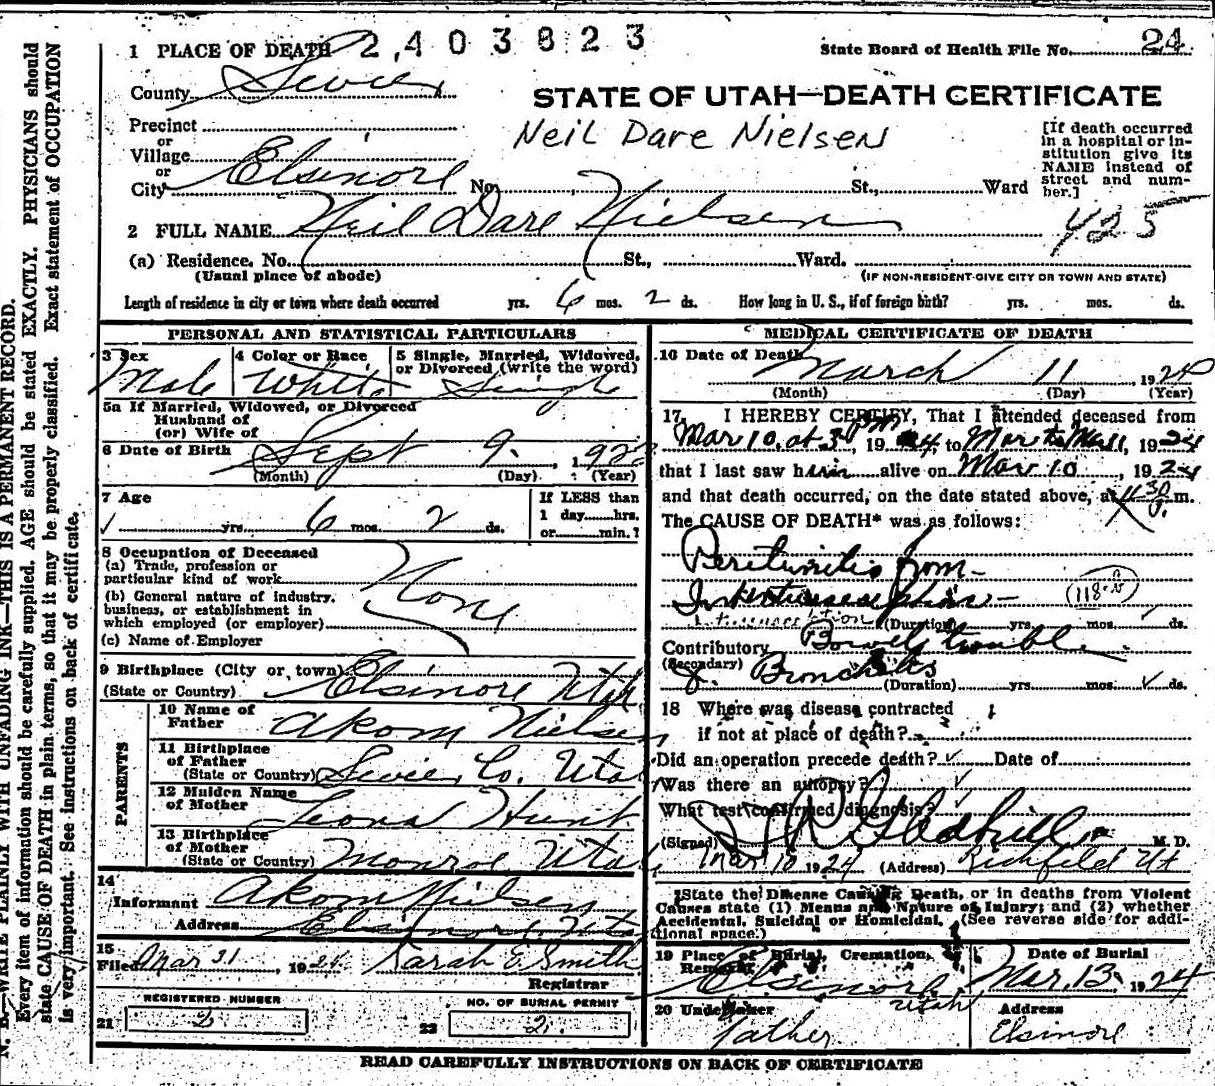 1 PLACE OF DEATH 2403823 State Board of Health File No. 24
County Sevier
STATE OF UTAH—DEATH CERTIFICATE
Precinct
or
Village
or
City Elsinore No. St., Ward
Neil Dare Nielsen
[If death occurred
in a hospital or in-
stitution give its
NAME instead of
street and num-
ber.]
2 FULL NAME Neil Dare Nielsen
425
(a) Residence. No. St., Ward.
(Usual place of abode) (IF NON-RESIDENT GIVE CITY OR TOWN AND STATE)
Length of residence in city or town where death occurred yrs. 6 mos. 2 ds. How long in U. S., if of foreign birth? yrs. mos. ds.
PERSONAL AND STATISTICAL PARTICULARS
3 Sex 4 Color or Race 5 Single, Married, Widowed,
or Divorced (write the word)
Male White Single
5a If Married, Widowed, or Divorced
Husband of
(or) Wife of
6 Date of Birth Sept 9, 1922
(Month) (Day) (Year)
7 Age If LESS than
1 day hrs.
1 yrs. 6 mos. 2 ds. or min.?
8 Occupation of Deceased
(a) Trade, profession or
particular kind of work None
(b) General nature of industry,
business, or establishment in
which employed (or employer)
(c) Name of Employer
9 Birthplace (City or town)
(State or Country) Elsinore Utah
PARENTS
10 Name of
Father Akom Nielsen
11 Birthplace
of Father
(State or Country) Sevier Co. Utah
12 Maiden Name
of Mother Leona Hunt
13 Birthplace
of Mother
(State or Country) Monroe, Utah
14
Informant Akom Nielsen
Address Elsinore, Uta
15
Filed Mar 31, 1924 Sarah E Smith
Registrar
REGISTERED NUMBER NO. OF BURIAL PERMIT
21 2 22 2.
MEDICAL CERTIFICATE OF DEATH
16 Date of Death March 11 1924
(Month) (Day) (Year)
17 I HEREBY CERTIFY, That I attended deceased from
Mar 10, at 3 PM, 1924, to Mar 11, 1924
that I last saw him alive on Mar 10, 1924
and that death occurred, on the date stated above, at 30 m.
The CAUSE OF DEATH* was as follows:
Peritinitis from
(118-B)
(Duration) yrs. mos. ds.
Contributory Bowel trouble
(Secondary) & Bronchitis
(Duration) yrs. mos. ds.
18 Where was disease contracted
if not at place of death?
Did an operation precede death? Date of
Was there an autopsy?
What test confirmed diagnosis?
(Signed) M. D.
Mar 10 1924 (Address) Richfield Ut
*State the Disease Causing Death, or in deaths from Violent
Causes state (1) Means and Nature of Injury; and (2) whether
Accidental, Suicidal or Homicidal. (See reverse side for addi-
tional space.)
19 Place of Burial, Cremation, Date of Burial
Removal Elsinore Utah Mar. 13 1924
20 Undertaker Address
Father Elsinore
READ CAREFULLY INSTRUCTIONS ON BACK OF CERTIFICATE
N. B.—WRITE PLAINLY WITH UNFADING INK—THIS IS A PERMANENT RECORD.
Every item of information should be carefully supplied. AGE should be stated EXACTLY. PHYSICIANS should
state CAUSE OF DEATH in plain terms, so that it may be properly classified. Exact statement of OCCUPATION
is very important. See instructions on back of certificate.